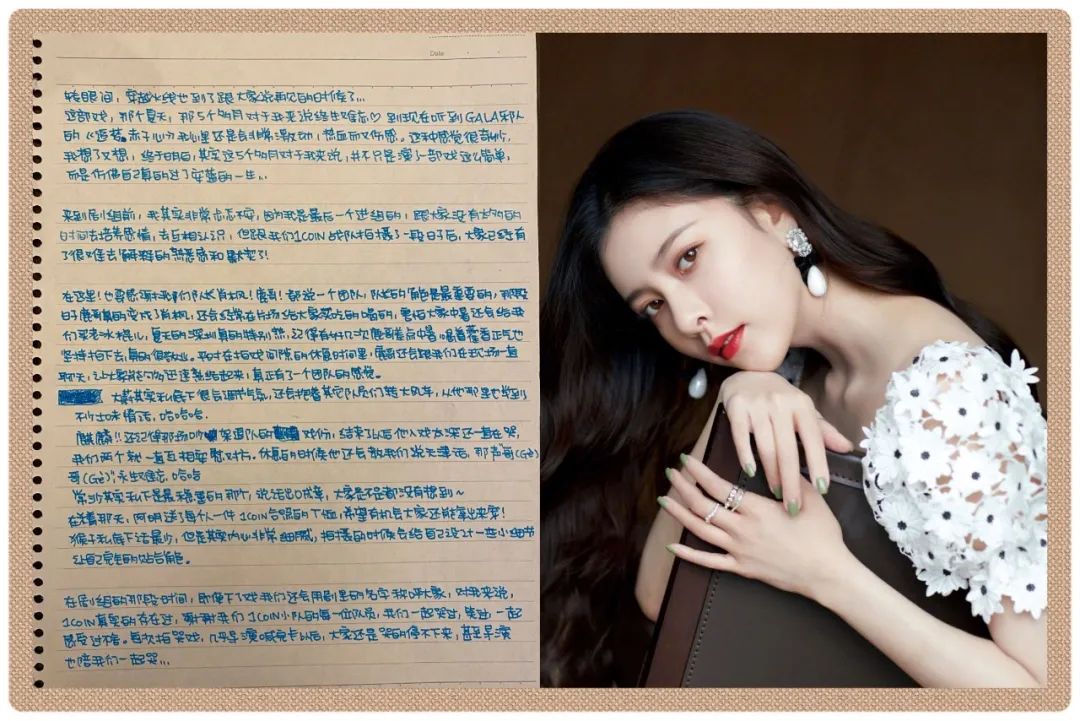 Date
转眼间，穿越火线也到了跟大家说再见的时候了...
这部戏，那个夏天，那5个多月对于我来说终生难忘♡ 到现在听到GALA乐队
的《追梦赤子心》我心里还是会非常激动，热血而又伤感。这种感觉很奇妙，
我想了又想，终于明白，其实这5个多月对于我来说，并不只是演了一部戏这么简单，
而是仿佛自己真的过了安蓝的一生...
来到剧组前，我其实非常忐忑不安，因为我是最后一个进组的，跟大家没有太多的
时间去培养感情，去互相认识，但跟我们1COIN战队相处了一段日子后，大家已经有
了很难去解释的熟悉感和默契了！
在这里！也要感谢我们队长肖枫！鹿哥！都说一个团队，队长的能量是最重要的，那段
日子鹿哥真的变成了肖枫，还会经常在片场给大家买吃的喝的，更怕大家中暑还会给我
们买老冰棍儿，夏天的深圳真的特别热，记得有好几次鹿哥差点中暑，喝着藿香正气也
坚持拍下去，真的很敬业。平时在拍戏间隙的休息时间里，鹿哥还会跟我们在现场一直
聊天，让大家能够迅速熟络起来，真正有了一个团队的感觉。
大薪其实私底下很会调节气氛，还会抱着其它队员们转大风车，从他那里也学到
不少土味情话，哈哈哈。
麒麟！！还记得那场吵架退队的戏份，结束了以后他入戏太深还一直在哭，
我们两个就一直互相安慰对方。休息的时候他还会教我们说天津话，那声哥(Gé)
哥(Gē)永生难忘，哈哈
常沙其实私下是最稳重的那个，说话出口成章，大家是不是都没有想到～
杀青那天，阿明送了每个人一件1COIN合照的T恤，希望有机会大家还能拿出来穿！
猴子私底下话最少，但是其实内心非常细腻，拍摄的时候会给自己设计一些小细节
让自己完全的贴合角色。
在剧组的那段时间，即使下了戏我们还会用剧里的名字称呼大家，对我来说，
1COIN真实的存在过，谢谢我们1COIN小队的每一位队员，我们一起哭过，笑过，一起
感受过不舍。每次拍哭戏，几乎导演喊完卡以后，大家还是哭的停不下来，甚至导演
也陪我们一起哭...